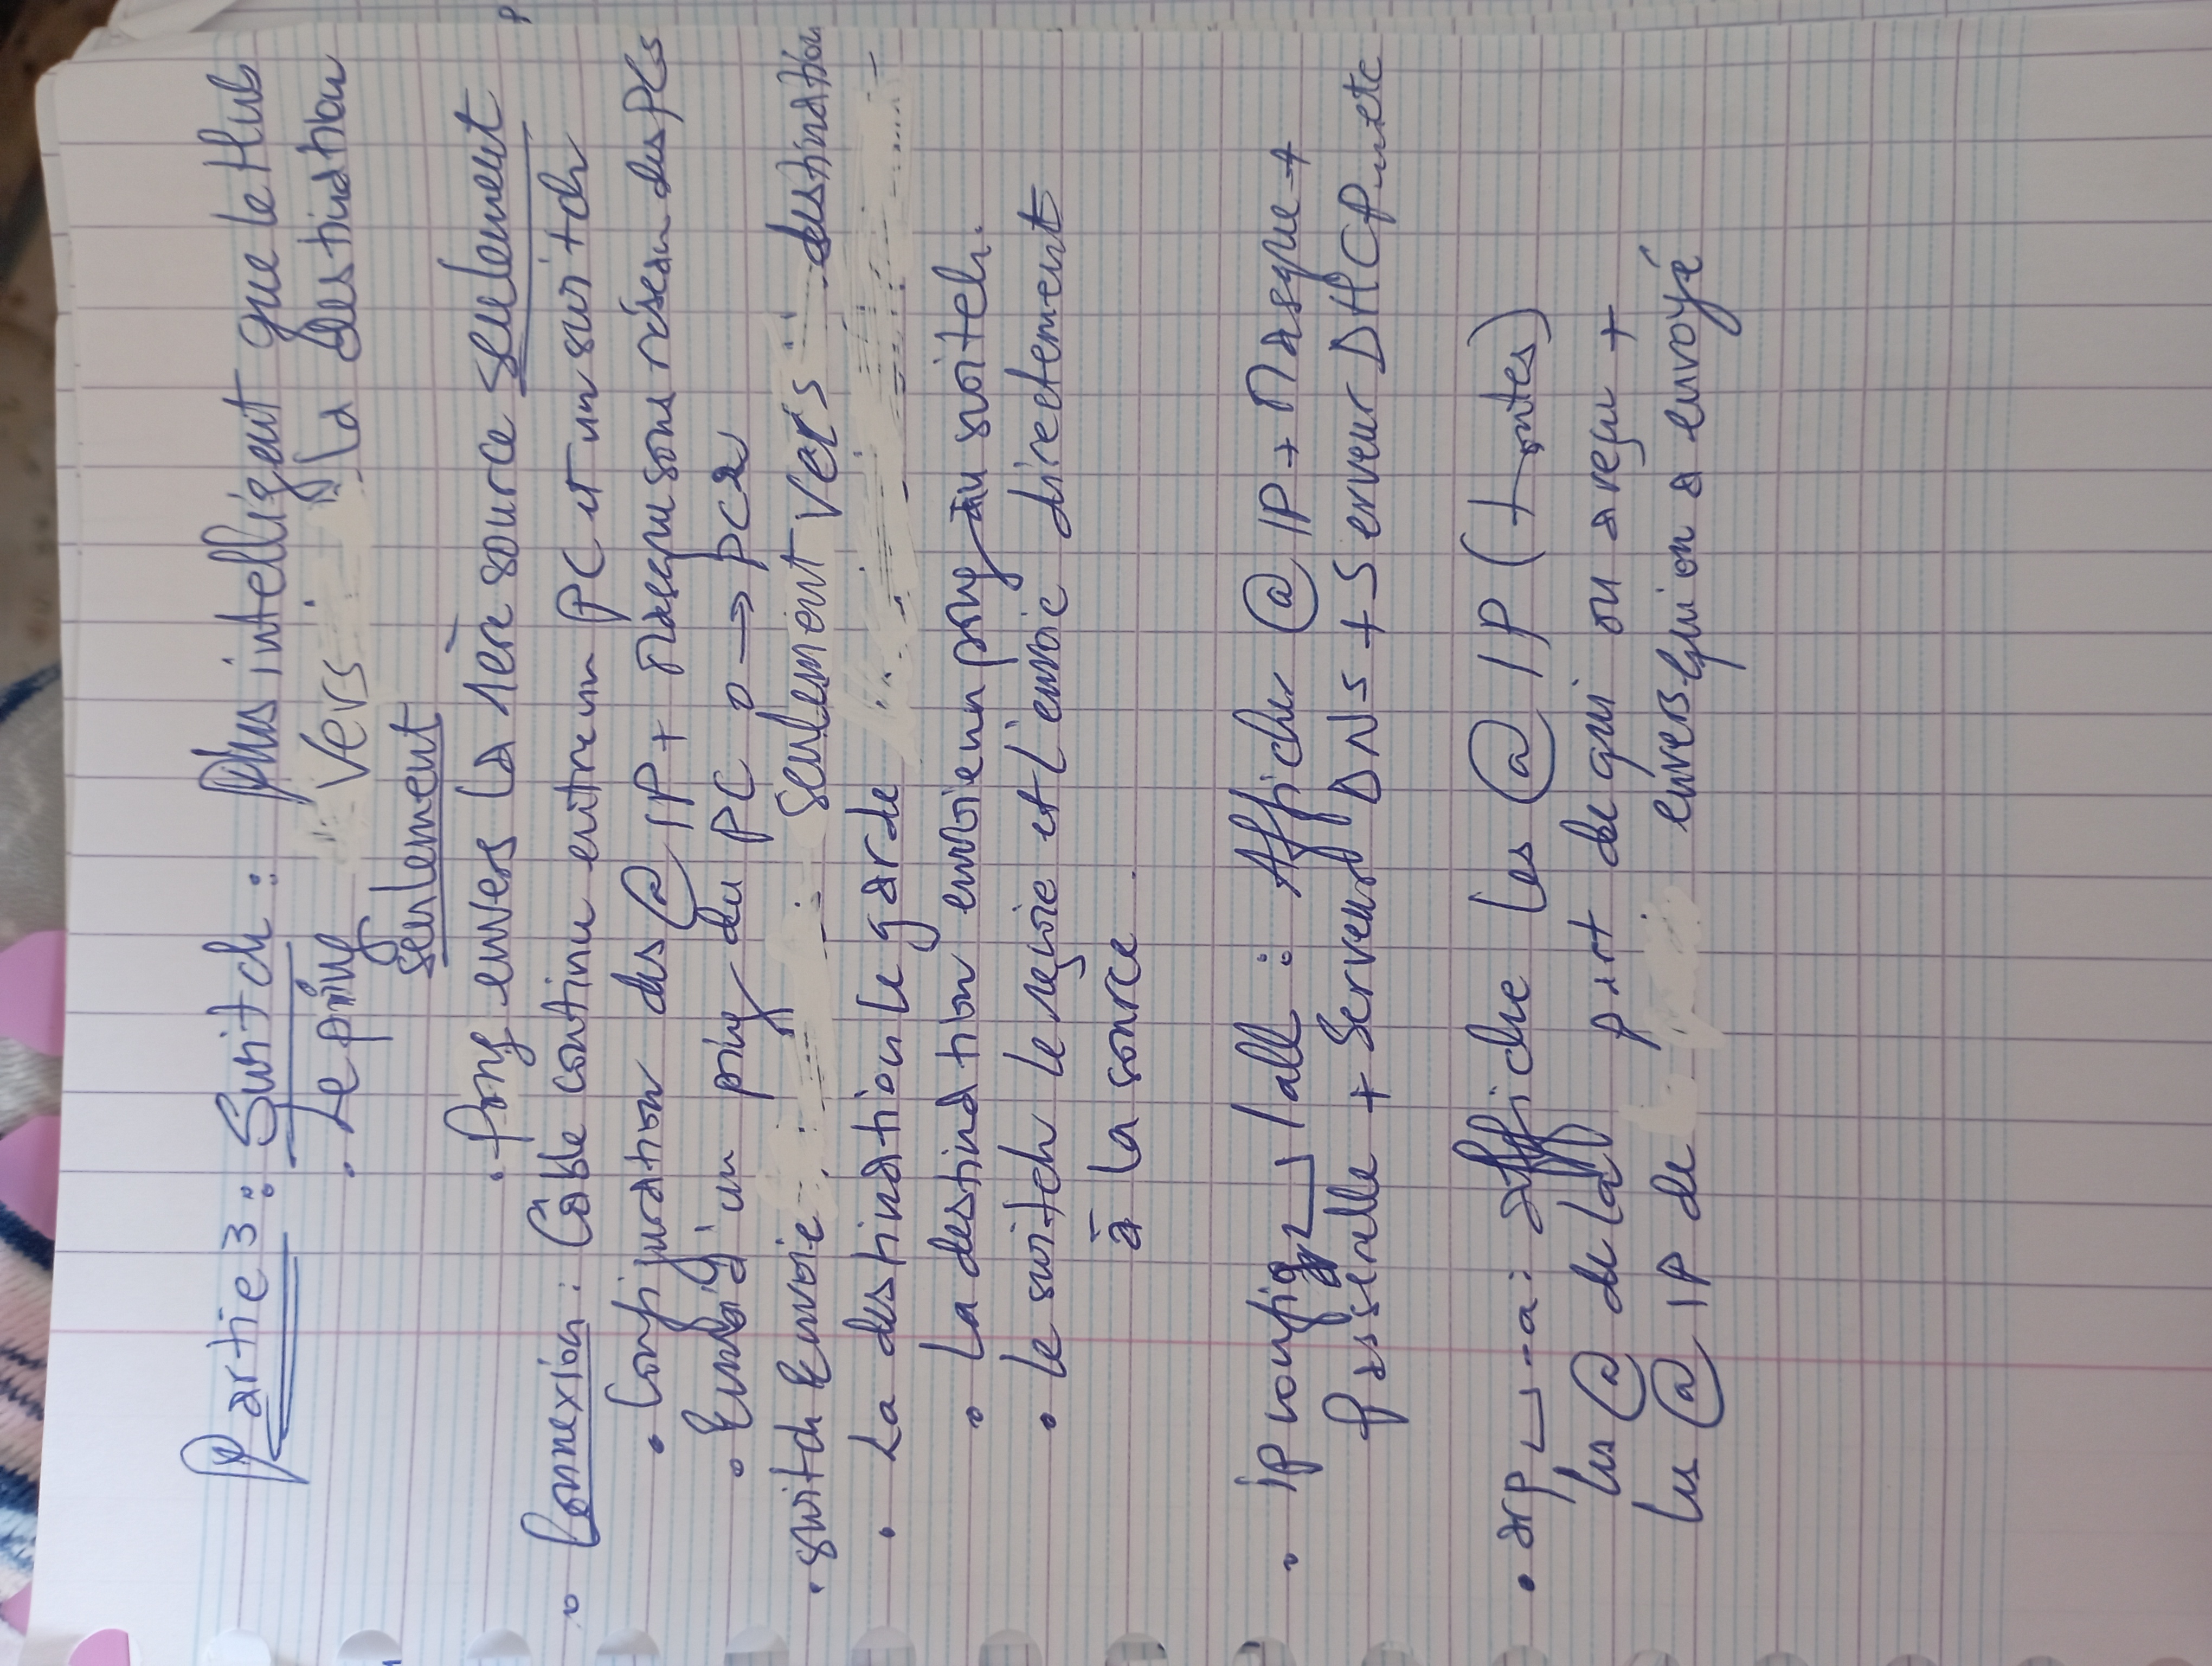 Partie 3 : Switch : Plus intelligent que le Hub
. Le ping vers la destination
seulement
. Pong envers la 1ère source seulement
o Connexion : Câble continu entre un PC et un switch
. Configuration des @ IP + Masque sous réseau des PCs
. Envoi d'un ping du PC 0 → PC2
. switch Envoie seulement vers destination
. La destination le garde
. La destination envoie un pong au switch.
. le switch le reçoie et l'envoie directement
à la source
. ipconfig ⎵ /all : Afficher @ IP + Masque +
Passerelle + Serveur DNS + Serveur DHCP...etc
. arp ⎵ -a : affiche les @ IP (toutes)
les @ de la part de qui on a reçu +
les @ IP de envers qui on a envoyé